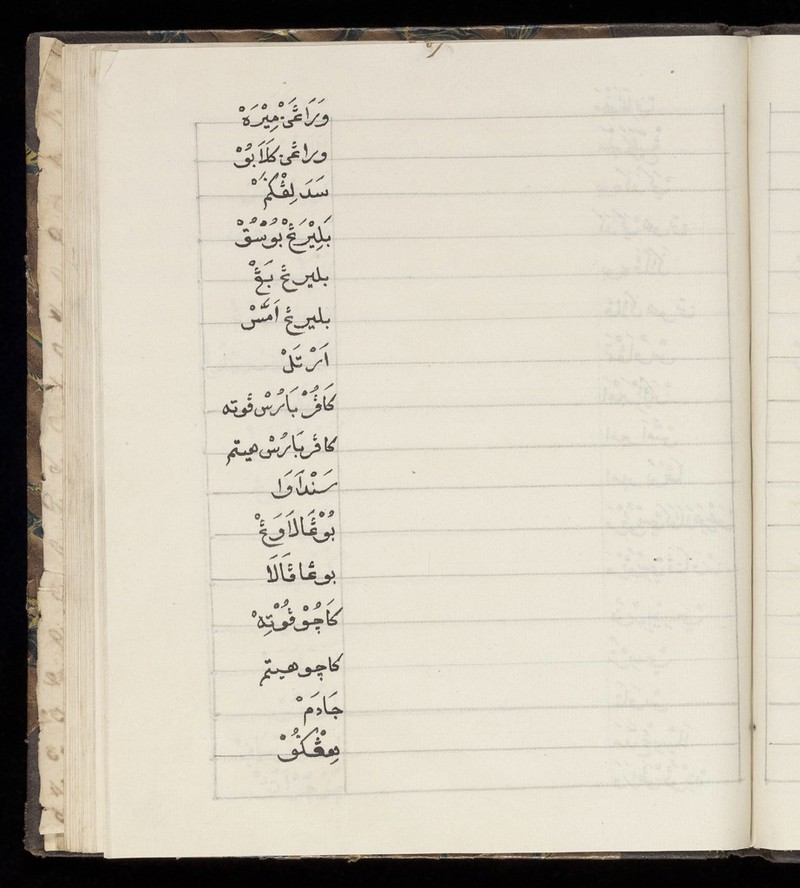 وَرَاڠَنْ مِيْرَهْ
وراڠن كَلَابُوْ
سَدَ لِڠْكَمْ
بَلِيْرَڠْ بُوْسُوْقْ
بليرڠ بَڠْ
بليرڠ اَمَّسْ
اَرْ تَلْ
كَافُرْ بَارُسْ ڤوته
كافر بَارُسْ هيتم
سَنْدَاوَا
بُوْڠَالَاوَڠْ
بوڠاڤَالَا
كَاچُوْ ڤُوْتِهْ
كاچو هيتم
جَادَمْ
مڠْكُدُوْ